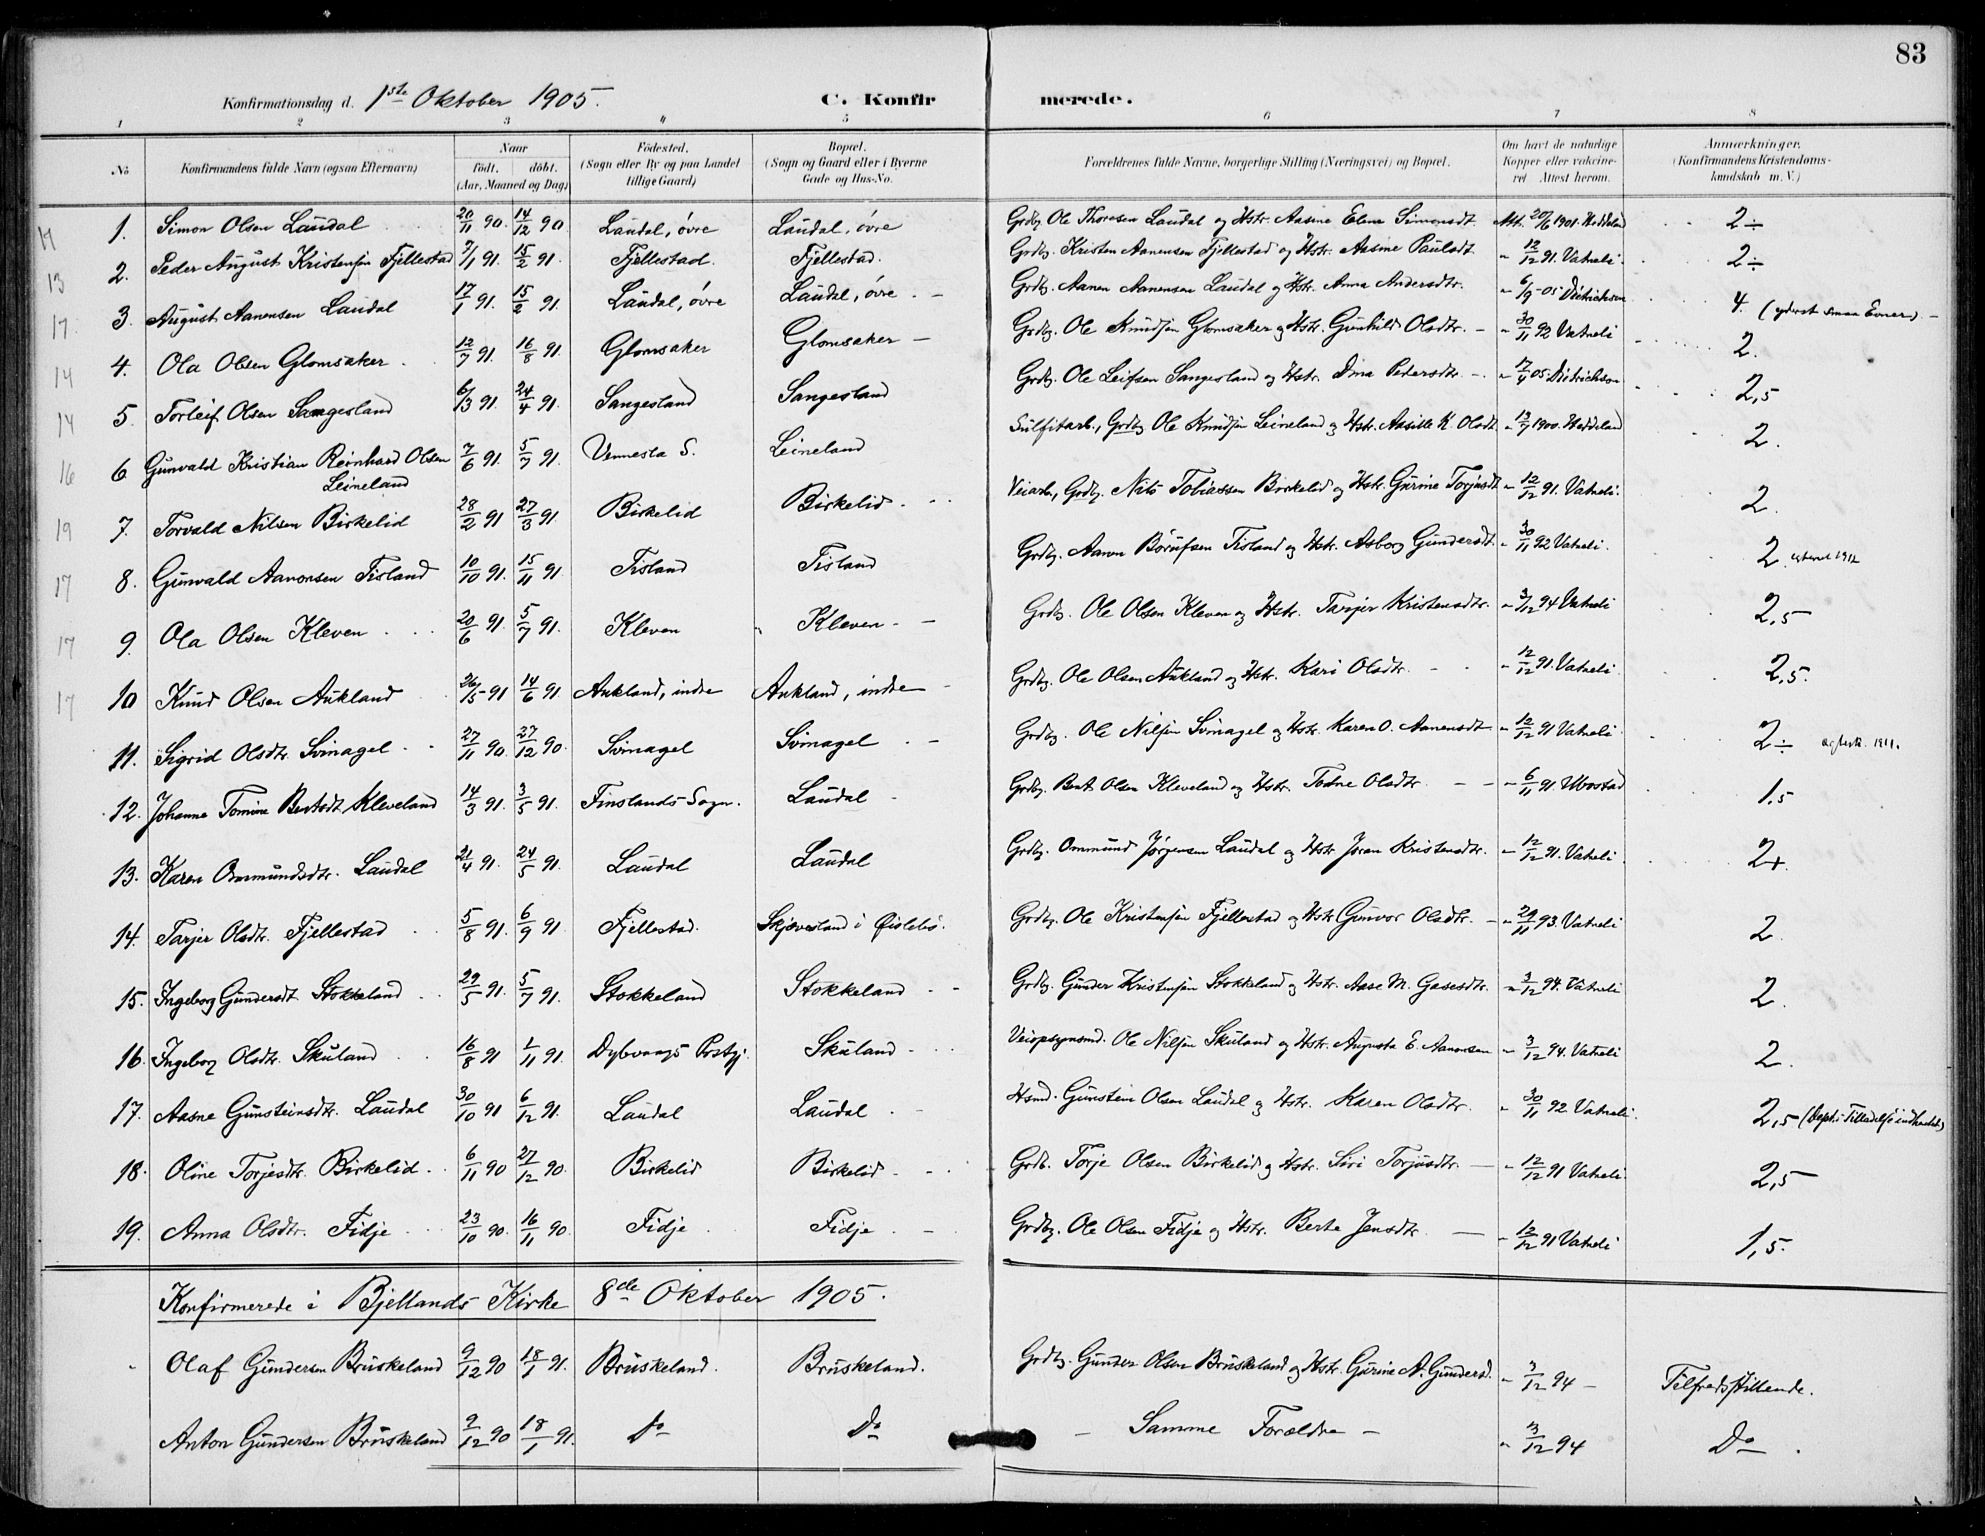 83
Konfirmationsdag d. 1ste Oktober 1905. C. Konfirmerede.
1 2 3 4 5 6 7 8
No Konfirmandens fulde Navn (ogsaa Efternavn) Naar født. døbt. (Aar, Maaned og Dag) Fødested. (Sogn eller By og paa Landet tillige Gaard) Bopæl. (Sogn og Gaard eller i Byerne Gade og Hus-No. Forældrenes fulde Navne, borgerlige Stilling (Næringsvei) og Bopæl. Om havt de naturlige Kopper eller vakcineret Attest herom. Anmærkninger. (Konfirmandens Kristendomskundskab m. V.)
1. Simon Olsen Laudal 20/11 90. 14/12 90 Laudal, øvre Laudal, øvre Grdbg. Ole Thorsen Laudal og Hstr. Aasine Elene Simonsdt. Att. 20/6 1901. Heddeland 2÷
13 2. Peder August Kristensen Fjellestad 7/1 91. 15/2 91. Fjellestad. Fjellestad. Grdbg. Kristen Aanensen Fjellestad og Hstr. Aasine Paulsdt. " 12/12 91. Vatneli. 2÷
17 3. August Aanensen Laudal 17/1 91. 15/2 91 Laudal, øvre Laudal, øvre. Grdbg. Aanen Aanensen Laudal og Hstr. Anna Andersdtr. " 6/9 05 Dietrichson 4. (yderst smaa Evner). –
14 4. Ola Olsen Glomsaker 12/7 91. 16/8 91. Glomsaker Glomsaker – Grdbg. Ole Knudsen Glomsaker og Hstr. Gunhild Olsdtr. – " 30/11 92 Vatneli 2.
14 5. Torleif Olsen Sangesland 6/3 91. 24/4 91. Sangesland Sangesland Grdbg. Ole Leifsen Sangesland og Hstr. Dina Pedersdtr – " 17/4 05 Dietrichson 2,5
16 6 Gunvald Kristian Reinhard Olsen Leineland 7/6 91. 5/7 91. Vennesla S. Leineland Sulfitarb., Grdbg Ole Knudsen Leineland og Hstr. K. Olsdt. " 13/7 1900. Heddeland 2.
19 7. Torvald Nilsen Birkelid 28/2 91 27/3 91. Birkelid Birkelid. Veiarb., Grdbg. Nils Tobiassen Birkelid og Hstr. Gurine Torjusdt " 12/12 91. Vatneli. 2.
17 8. Gunvald Aanonsen Fisland 10/10 91. 15/11 91 Fisland Fisland Grdbg. Aanon Børufsen Fisland og Hstr. Asborg Gundersdt. " 30/11 92 Vatneli. 2. 1912
17 9. Ola Olsen Kleven 20/6 91. 5/7 91. Kleven Kleven – – Grdbg. Ole Olsen Kleven og Hstr. Tarjer Kristensdtr. " 3/12 94 Vatneli 2,5
17 10 Knud Olsen Aukland 26/5 91 14/6 91 Aukland, indre Aukland, indre Grdbg. Ole Olsen Aukland og Hstr. Kari Olsdtr. – " 12/12 91. Vatneli 2,5.
11. Sigrid Olsdtr. Svinagel 27/11 90. 27/12 90. Svinagel Svinagel – Grdbg. Ole Nilsen Svinagel og Hstr. Karen O. Aanensdt " 12/12 91 Vatneli 2÷ 1911.
12. Johanne Tomine Bentsdt. Kleveland 14/3 91. 3/5 91. Finslands Sogn. Laudal Grdbg. Bent Olsen Kleveland og Hstr. Todne Olsdtr – – " 6/11 91. Ubostad 1,5
13. Karen Ommundsdtr. Laudal 21/4 91. 24/5 91. Laudal Laudal Grdbg. Ommund Jørgensen Laudal og Hstr. Jøren Kristensdtr. " 12/12 91. Vatneli 2+.
14. Tarjer Olsdtr. Fjellestad 5/8 91. 6/9 91 Fjellestad. Skjævesland i Øislebø. Grdbg. Ole Kristensen Fjellestad og Hstr. Gunvor Olsdtr. – " 29/11 93. Vatneli 2
15. Ingeborg Gundersdt Stokkeland 29/5 91. 5/7 91. Stokkeland Stokkeland Grdbg. Gunder Kristensen Stokkeland og Hstr. Aase M. Gasesdtr. " 3/12 94. Vatneli 2.
16. Ingeborg Olsdtr. Skuland 16/8 91 1/11 91. Dybvaags Prstgj. Skuland Veiopsynsmd. Ole Nilsen Skuland og Hstr. Augusta E. Aanonsen " 3/12 94. Vatneli 2.
17. Aasne Gunsteinsdtr. Laudal 30/10 91 6/12 91. Laudal Laudal Hsmd. Gunstein Olsen Laudal og Hstr. Karen Olsdtr. " 30/11 92 Vatneli. 2,5 (Dept.s Tilladelse indhentet)
18. Oline Torjesdtr. Birkelid 6/11 90 27/12 90. Birkelid Birkelid Grdb. Torje Olsen Birkelid og Hstr. Siri Torjusdtr. – " 12/12 91 Vatneli. 2,5
19. Anna Olsdtr. Fidje 23/10 90. 16/11 90. Fidje Fidje – Grdbg. Ole Olsen Fidje og Hstr. Berte Jensdtr – " 12/12 91 Vatneli 1,5.
Konfirmerede i Bjellands Kirke 8de Oktober 1905.
Olaf Gundersen Bruskeland 9/12 90 18/1 91. Bruskeland. Bruskeland. Grdbg. Gunder Olsen Bruskeland og Hstr. Gurine A. Gundersd. " 3/12 94 – Tilfredsstillende.
Anton Gundersen Bruskeland 9/12 90 18/1 91. Do Do – Samme Forældre – " 3/12 94 Do.